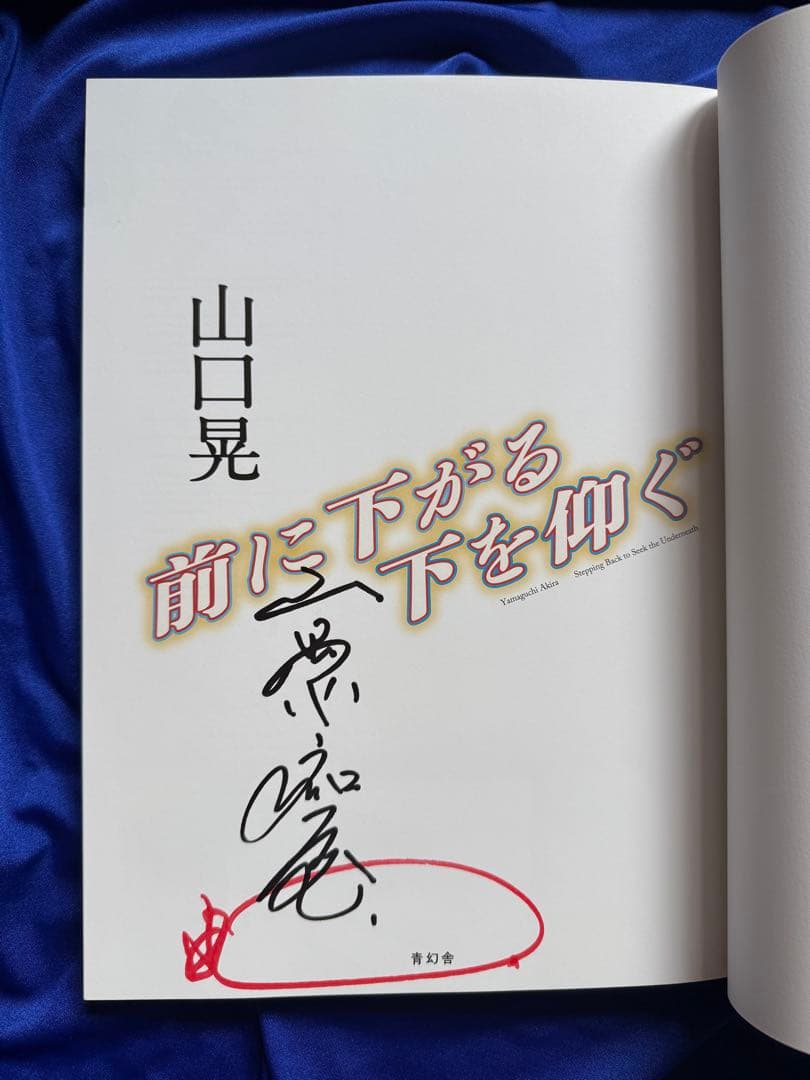 山口晃
前に下がる
下を仰ぐ
Yamaguchi Akira Stepping Back to Seek the Underneath
青幻舎